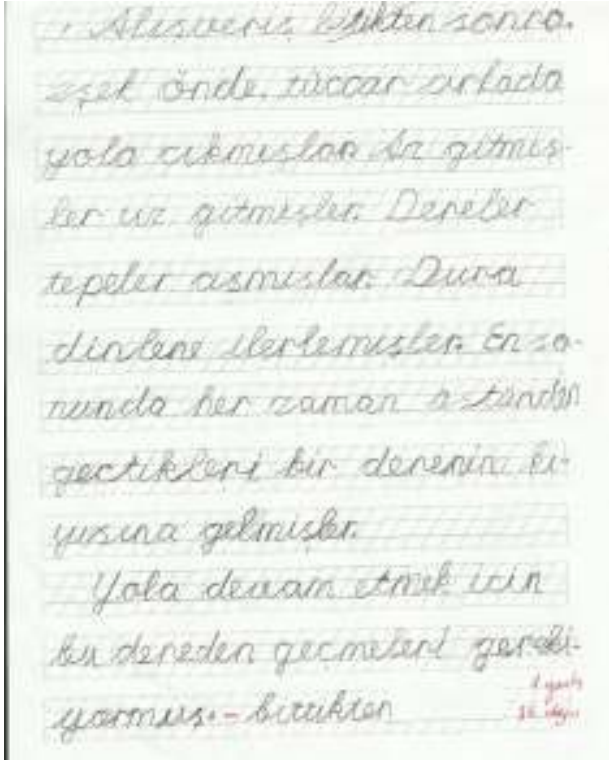 Alışveriş bittikten sonra.
eşek önde, tüccar arkada
yola cıkmışlar. Az gitmiş-
ler uz gitmişler. Dereler
tepeler asmışlar. Dura
dinlene ilerlemişler. En so-
nunda her zaman üstünden
geçtikleri bir derenin kı-
yısına gelmişler.
Yola devam etmek icin
bu dereden geçmeleri gereki-
yormuş. - bittikten